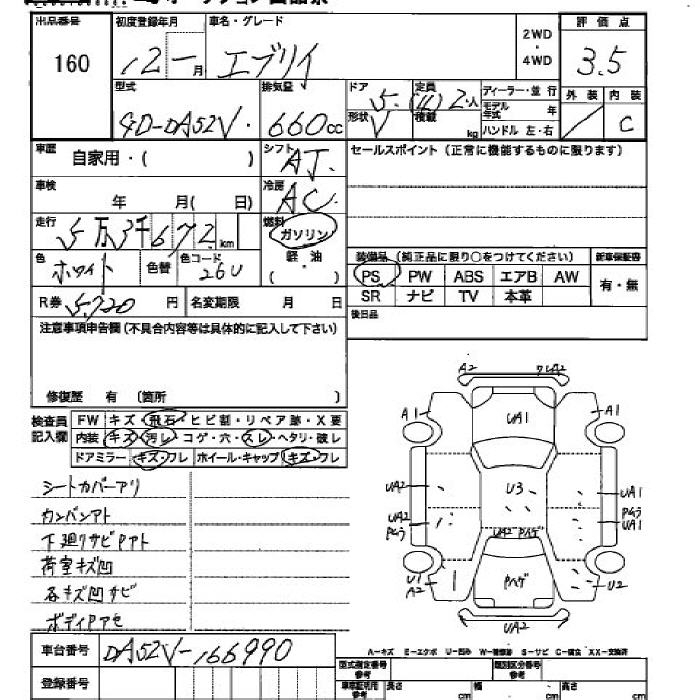 出品番号 初度登録年月 車名・グレード 2WD・4WD 評価点
160 12年一月 エブリイ 3.5
型式 排気量 ドア 定員 ディーラー・並行 外装 内装
GD-DA52V 660cc 5 (4) 2人 モデル年式 年 C
形状 V 積載 kg ハンドル 左・右
車歴 自家用・( ) シフト AT セールスポイント(正常に機能するものに限ります)
車検 年 月( 日) 冷房 AC
走行 5万3千672km 燃料 ガソリン
軽油
( )
色 ホワイト 色替 色コード 26U
装備品(純正品に限り○をつけてください) 新車保証書
PS PW ABS エアB AW 有・無
SR ナビ TV 本革
R券 5,720円 名変期限 月 日 後日品
注意事項申告欄(不具合内容等は具体的に記入して下さい)
修復歴 有 (箇所
検査員記入欄 FW キズ・飛石・ヒビ割・リペア跡・X要
内装 キズ・汚レ・コゲ・穴・スレ・ヘタリ・破レ
ドアミラー キズ・フレ ホイール・キャップ キズ・フレ
シートカバーアリ
カンバンアト
下廻リサビPアト
荷室キズ凹
各キズ凹サビ
ボディPアセ
A2 クレA2
A1 UA1 A1
UA2 U3 UA1
UA2 Pムラ Pムラ UA1
UA2 Pハゲ
U1 A2 Pハゲ U2
UA2
A-キズ E-エクボ U-凹み W-補修跡 S-サビ C-腐食 XX-交換済
車台番号 DA52V-166990
登録番号
型式指定番号 参考 類別区分番号 参考
車車証明用 参考 長さ cm 幅 cm 高さ cm